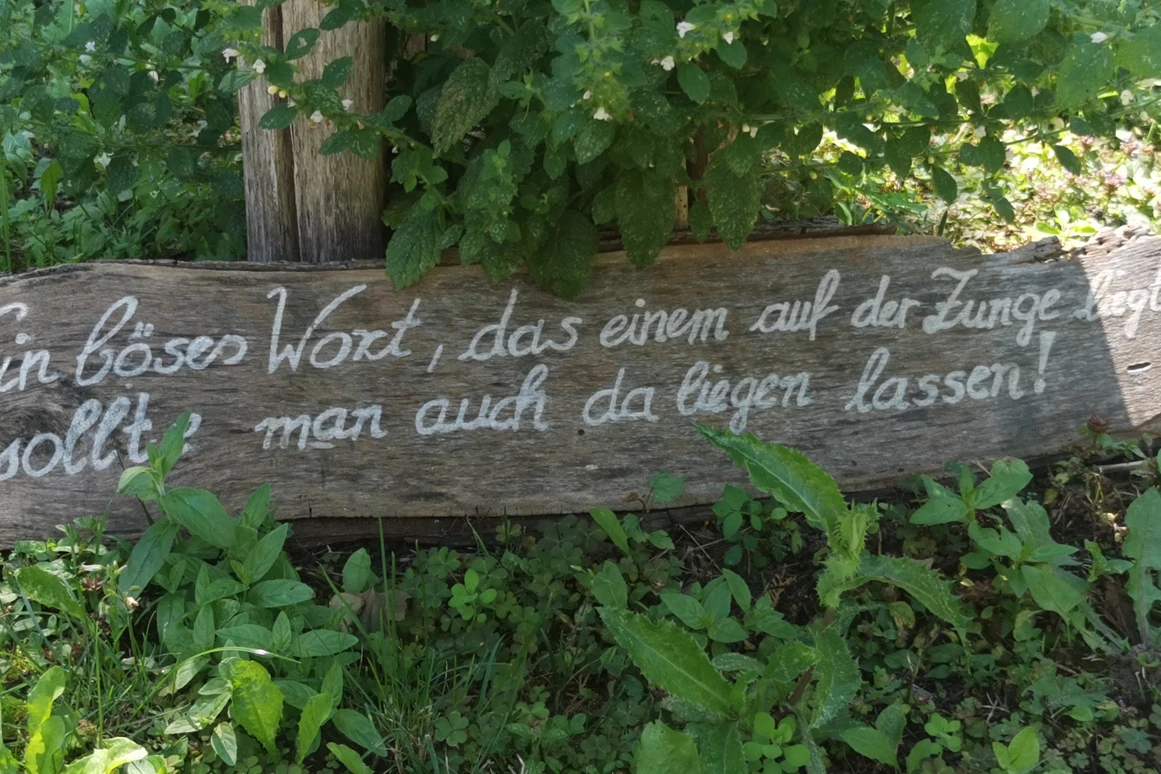 Ein böses Wort, das einem auf der Zunge liegt
sollte man auch da liegen lassen!